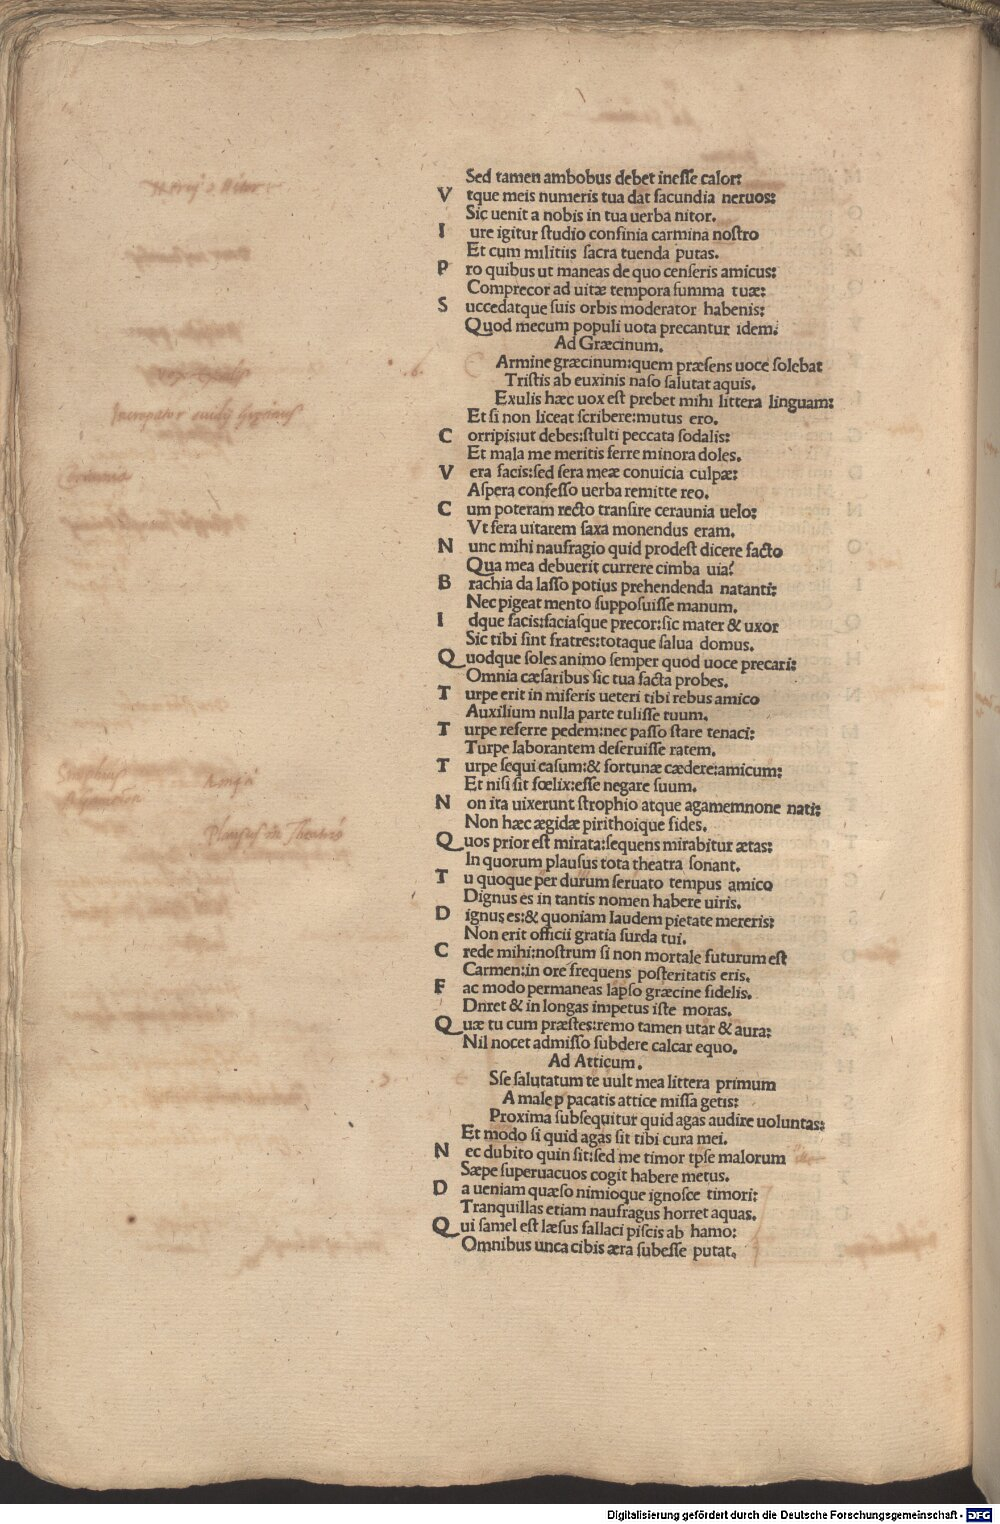 Sed tamen ambobus debet inesse calor:
V tque meis numeris tua dat facundia neruos:
Sic uenit a nobis in tua uerba nitor.
I ure igitur studio confinia carmina nostro
Et cum militiis sacra tuenda putas.
P ro quibus ut maneas de quo censeris amicus:
Comprecor ad uitæ tempora summa tuæ:
S uccedatque suis orbis moderator habenis:
Quod mecum populi uota precantur idem.
Ad Græcinum.
Armine græcinum:quem præsens uoce solebat
Tristis ab euxinis naso salutat aquis.
Exulis hæc uox est prebet mihi littera linguam:
Et si non liceat scribere:mutus ero.
C orripis:ut debes:stulti peccata sodalis:
Et mala me meritis ferre minora doles.
V era facis:sed sera meæ conuicia culpæ:
Aspera confesso uerba remitte reo.
C um poteram recto transire ceraunia uelo:
Vt fera uitarem saxa monendus eram.
N unc mihi naufragio quid prodest dicere facto
Qua mea debuerit currere cimba uia?
B rachia da lasso potius prehendenda natanti:
Nec pigeat mento supposuisse manum.
I dque facis:faciasque precor:sic mater & uxor
Sic tibi sint fratres:totaque salua domus.
Q uodque soles animo semper quod uoce precari:
Omnia cæsaribus sic tua facta probes.
T urpe erit in miseris ueteri tibi rebus amico
Auxilium nulla parte tulisse tuum.
T urpe referre pedem:nec passo stare tenaci:
Turpe laborantem deseruisse ratem.
T urpe sequi casum:& fortunæ cædere:amicum:
Et nisi sit fœlix:esse negare suum.
N on ita uixerunt strophio atque agamemnone nati:
Non hæc ægidæ pirithoique fides.
Q uos prior est mirata:sequens mirabitur ætas:
In quorum plausus tota theatra sonant.
T u quoque per durum seruato tempus amico
Dignus es in tantis nomen habere uiris.
D ignus es:& quoniam laudem pietate mereris:
Non erit officii gratia surda tui.
C rede mihi:nostrum si non mortale futurum est
Carmen:in ore frequens posteritatis eris.
F ac modo permaneas lapso græcine fidelis.
Dnret & in longas impetus iste moras.
Q uæ tu cum præstes:remo tamen utar & aura:
Nil nocet admisso subdere calcar equo.
Ad Atticum.
Sse salutatum te uult mea littera primum
A male p pacatis attice missa getis:
Proxima subsequitur quid agas audire uoluntas:
Et modo si quid agas sit tibi cura mei.
N ec dubito quin sit:sed me timor ipse malorum
Sæpe superuacuos cogit habere metus.
D a ueniam quæso nimioque ignosce timori:
Tranquillas etiam naufragus horret aquas.
Q ui samel est læsus fallaci piscis ab hamo:
Omnibus unca cibis æra subesse putat.
Digitalisierung gefördert durch die Deutsche Forschungsgemeinschaft - DFG